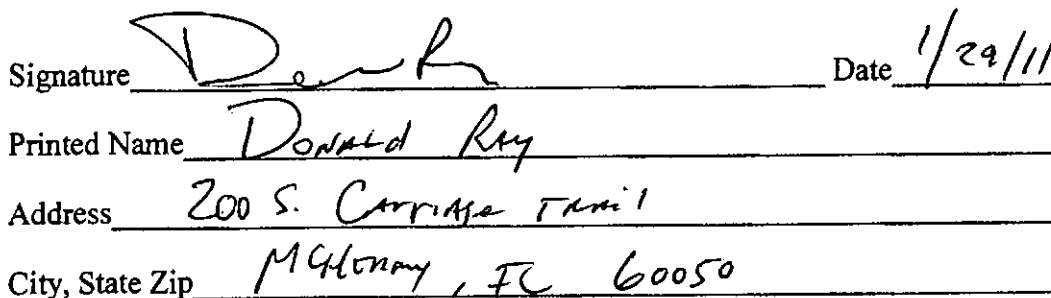 Signature Date 1/29/11
Printed Name Donald Ray
Address 200 S. Carriage Trail
City, State Zip McHenry, IL 60050